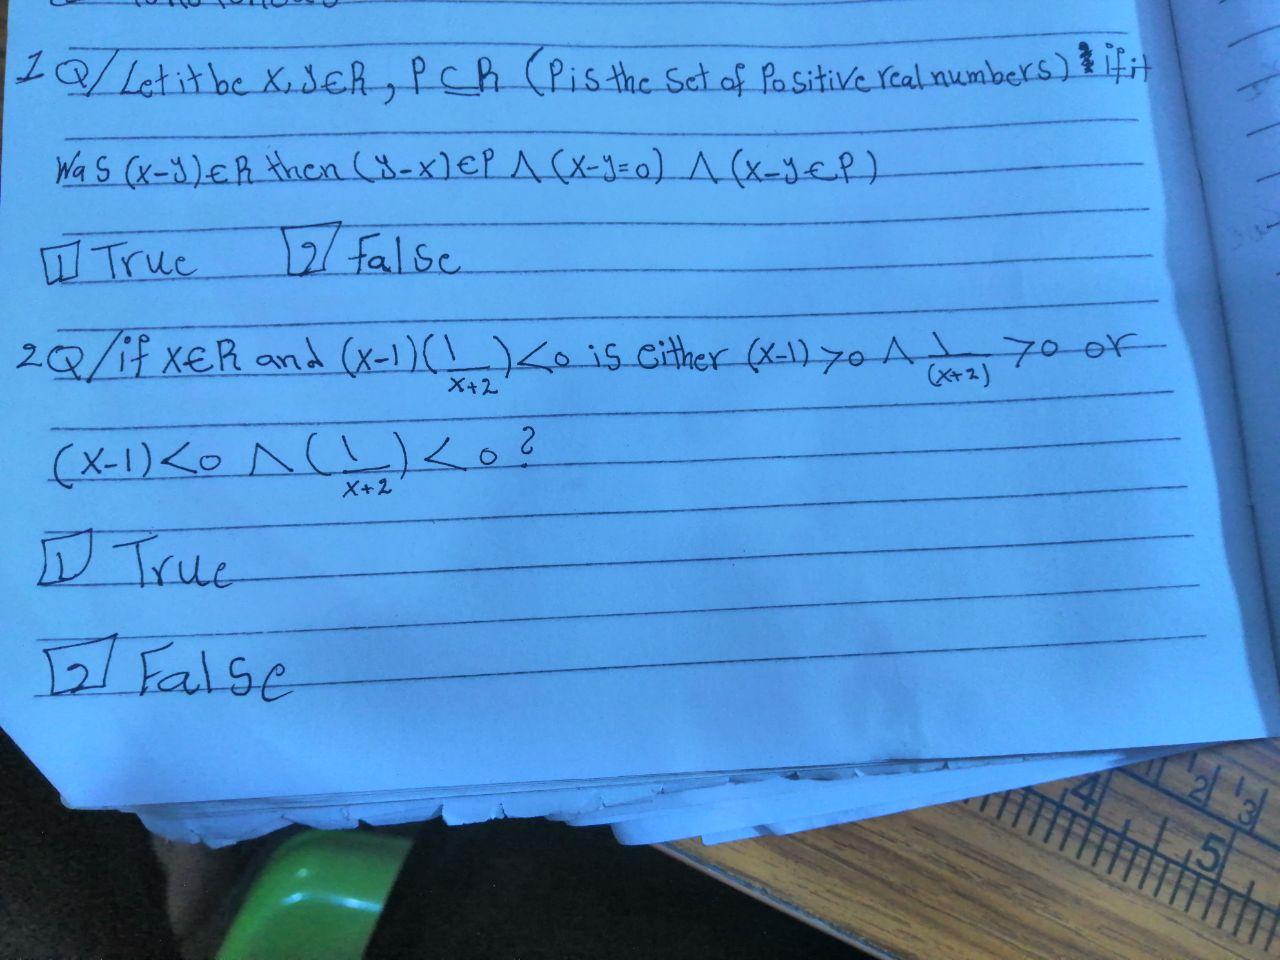 1 Q/ Let it be x, y∈R, P⊆R (P is the set of Positive real numbers) if it
was (x-y)∈R then (y-x)∈P ∧ (x-y=0) ∧ (x-y∈P)
1 True 2 False
2 Q/ if x∈R and (x-1)(1/x+2)<0 is either (x-1)>0 ∧ 1/(x+2) >0 or
(x-1)<0 ∧ (1/x+2)<0?
1 True
2 False
4 5
2 3